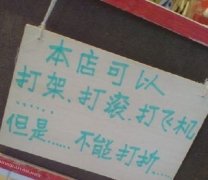 本店可以
打架、打滚、打飞机
......
但是......不能打折......